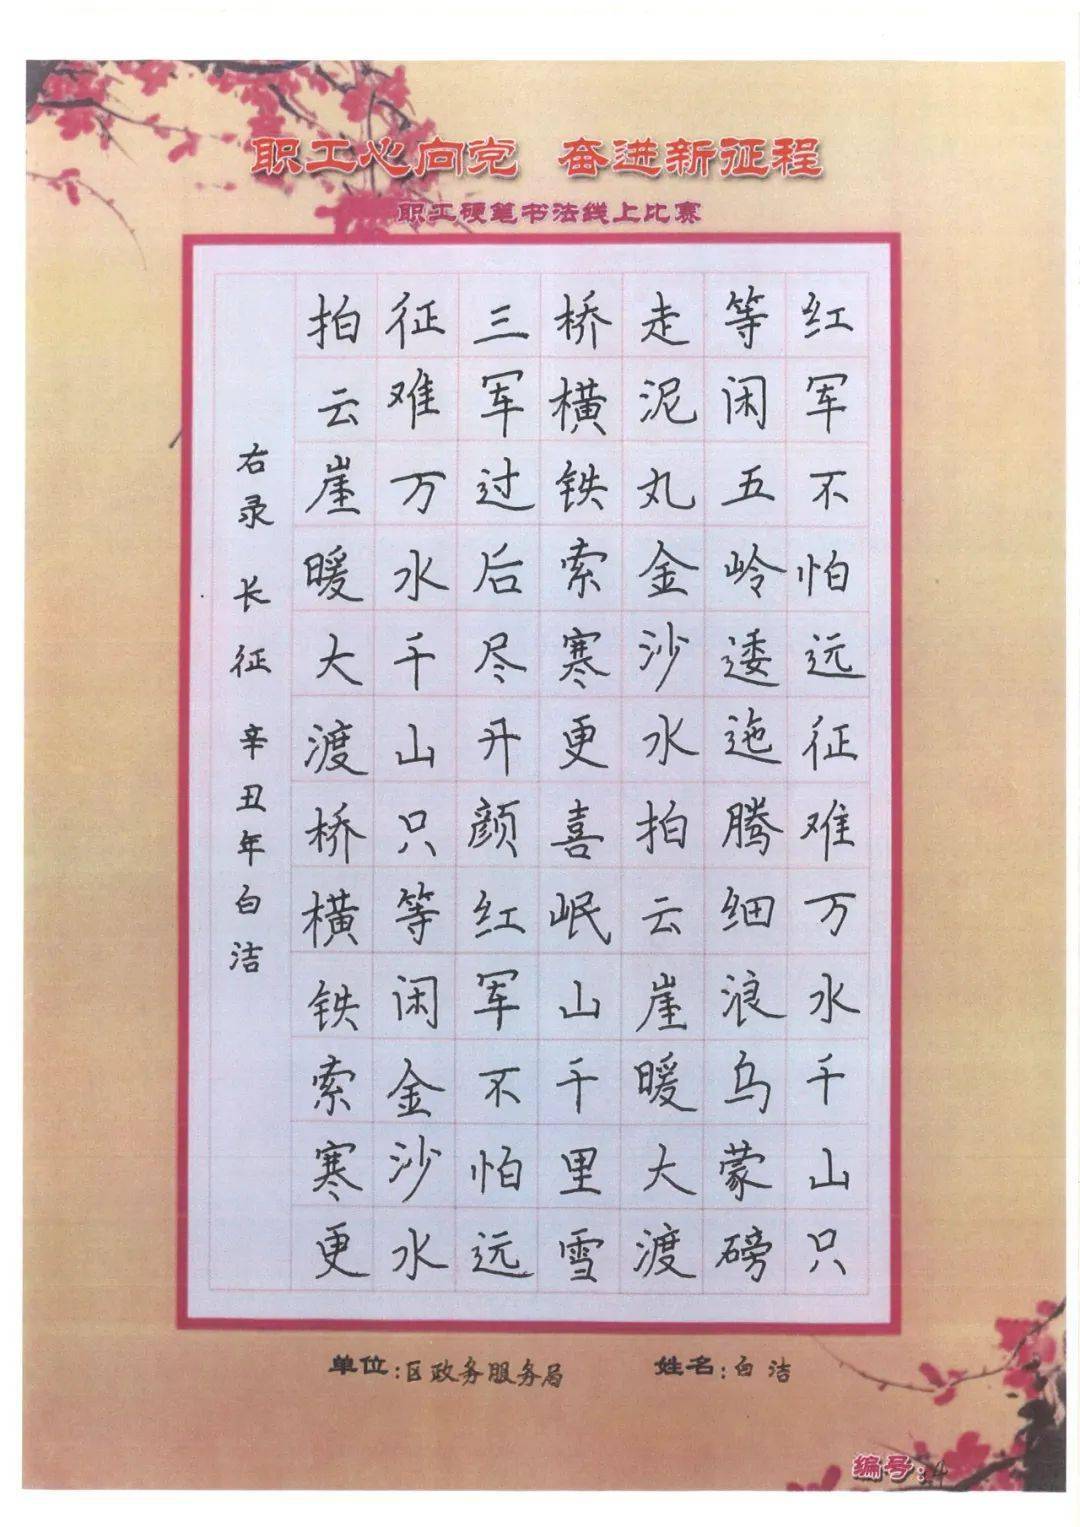 职工心向党 奋进新征程
职工硬笔书法线上比赛
红军不怕远征难万水千山只
等闲五岭逶迤腾细浪乌蒙磅
走泥丸金沙水拍云崖暖大渡
桥横铁索寒更喜岷山千里雪
三军过后尽开颜红军不怕远
征难万水千山只等闲金沙水
拍云崖暖大渡桥横铁索寒更
右录长征辛丑年白洁
单位:区政务服务局 姓名:白洁
编号:34